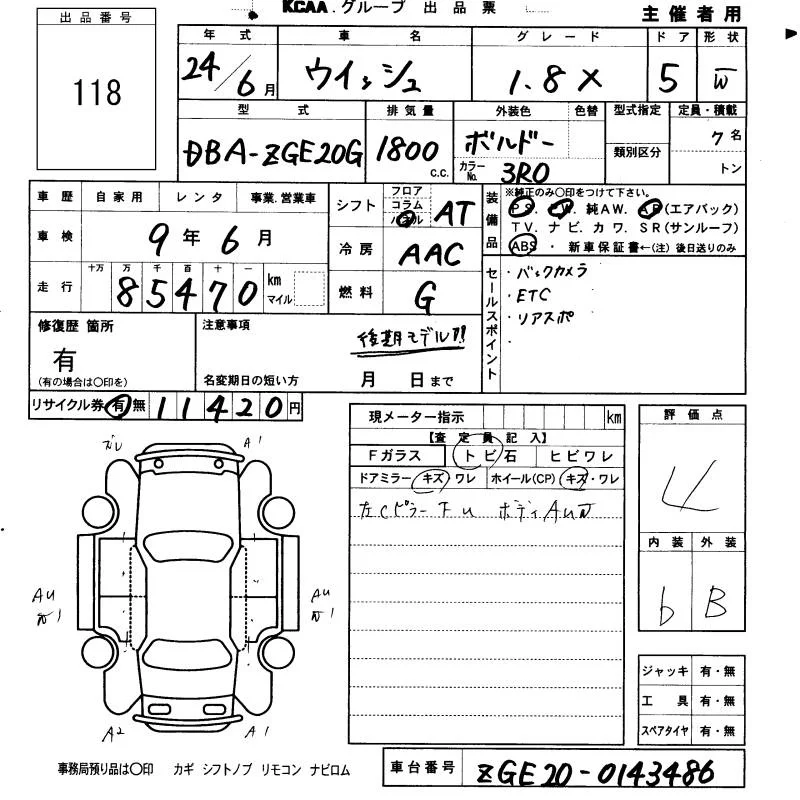 KCAA.グループ 出品票
主催者用
出品番号
118
年式 車名 グレード ドア 形状
24/6月 ウイッシュ 1.8X 5 W
型式 排気量 外装色 色替 型式指定 定員・積載
DBA-ZGE20G 1800 c.c. ボルドー 7名
類別区分
カラーNo. 3R0 トン
車歴 自家用 レンタ 事業.営業車
シフト フロア コラム AT
装備品 ※純正のみ○印をつけて下さい。
PS. PW. 純AW. AB(エアバック)
TV. ナビ. カワ. SR(サンルーフ)
ABS ・ 新車保証書←(注) 後日送りのみ
車検 9年6月
冷房 AAC
走行 十万 万 千 百 十 一
85470 km マイル
燃料 G
セールスポイント
・バックカメラ
・ETC
・リアスポ
・
修復歴 箇所
有
(有の場合は○印を)
注意事項
後期モデル!!
名変期日の短い方 月 日まで
リサイクル券 有 無 11420円
現メーター指示 km
【査定員記入】
Fガラス トビ石 ヒビワレ
ドアミラー キズ・ワレ ホイール(CP) キズ・ワレ
左Cピラー下U ボディAU
評価点
4
内装 外装
b B
ズレ A1
AU 1
AU 1
A2 A1
ジャッキ 有・無
工具 有・無
スペアタイヤ 有・無
事務局預り品は○印 カギ シフトノブ リモコン ナビロム
車台番号 ZGE20-0143486